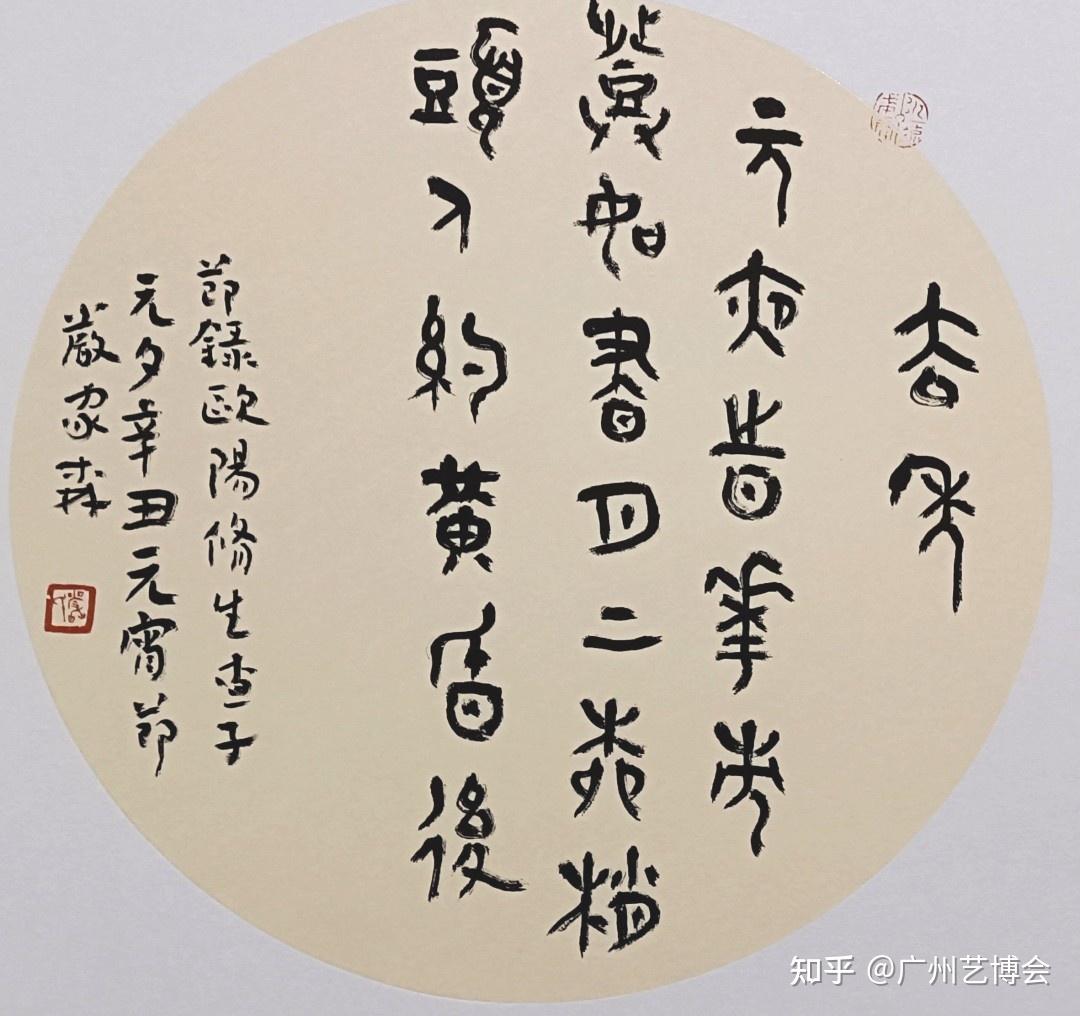 去年
元夜旹華市
登如晝月上柳梢
頭人約黃昏後
節錄歐陽修生查子
元夕辛丑元宵節
嚴家森
知乎 @广州艺博会